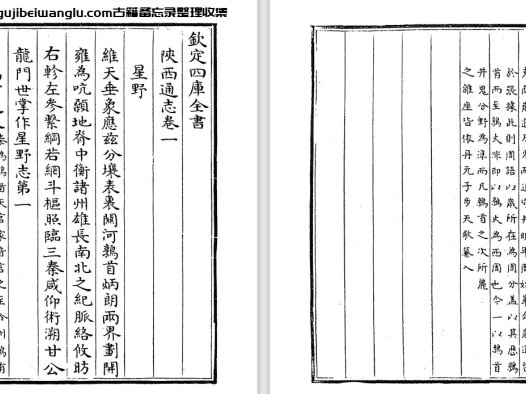 gujibeiwanglu.com古籍备忘录整理收集
於張據此則周語以歲所在為周分盖以其歷鶉
首而至鶉火非即以鶉火為西周也今一以鶉首
井鬼分野為準而凡鶉首之次所麗
之雜座皆依丹元子步天歌纂入
欽定四庫全書
陝西通志卷一
星野
維天垂象應兹分壤表裏關河鶉首炳朗兩界劃開
雍為吭頟地脊中衡諸州雄長南北之紀脈絡攸昉
右軫左參繫綱若網斗樞照臨三秦咸仰術溯甘公
龍門世掌作星野志第一